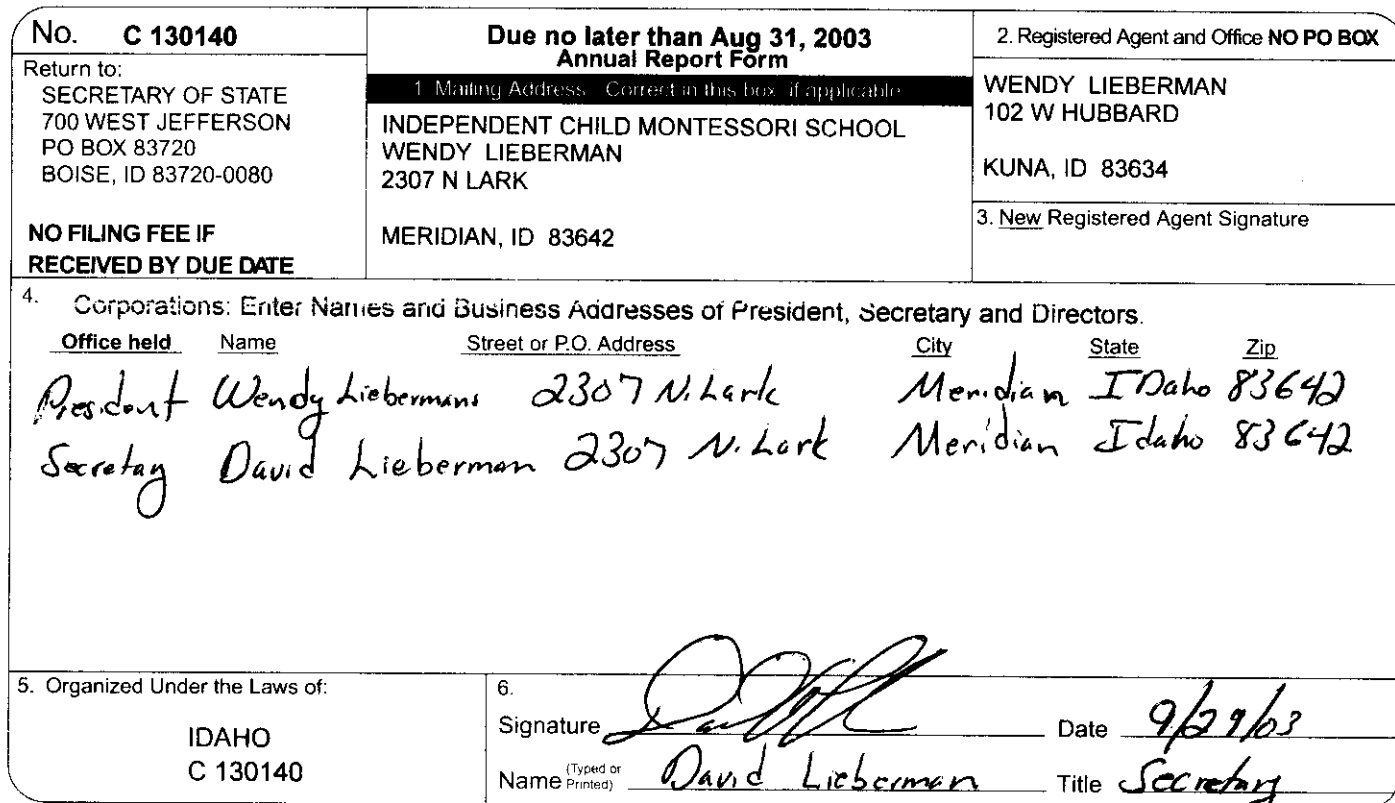 No. C 130140
Return to:
SECRETARY OF STATE
700 WEST JEFFERSON
PO BOX 83720
BOISE, ID 83720-0080
NO FILING FEE IF
RECEIVED BY DUE DATE
Due no later than Aug 31, 2003
Annual Report Form
1. Mailing Address: Correct in this box, if applicable
INDEPENDENT CHILD MONTESSORI SCHOOL
WENDY LIEBERMAN
2307 N LARK
MERIDIAN, ID 83642
2. Registered Agent and Office NO PO BOX
WENDY LIEBERMAN
102 W HUBBARD
KUNA, ID 83634
3. New Registered Agent Signature
4. Corporations: Enter Names and Business Addresses of President, Secretary and Directors.
Office held Name Street or P.O. Address City State Zip
President Wendy Liebermans 2307 N. Lark Meridian IDaho 83642
Secretay David Lieberman 2307 N. Lark Meridian Idaho 83642
5. Organized Under the Laws of:
IDAHO
C 130140
6.
Signature Date 9/29/03
Name (Typed or Printed) David Lieberman Title Secretary